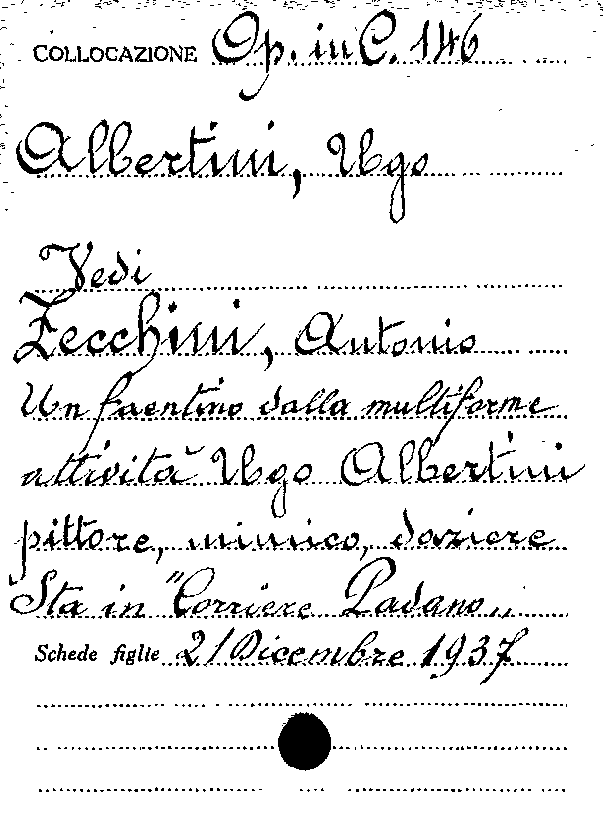 COLLOCAZIONE Op. in C. 146
Albertini, Ugo
Vedi
Zecchini, Antonio
Un faentino dalla multiforme
attività Ugo Albertini
pittore, mimico, daziere
Sta in "Corriere Padano"
Schede figlie 21 Dicembre 1937